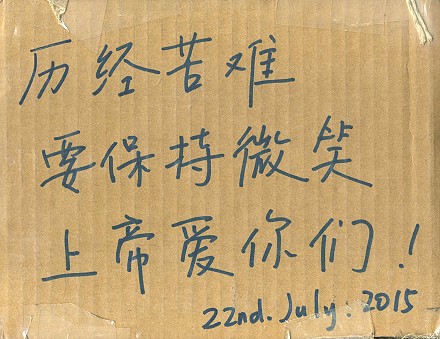 历经苦难
要保持微笑
上帝爱你们！
22nd. July. 2015